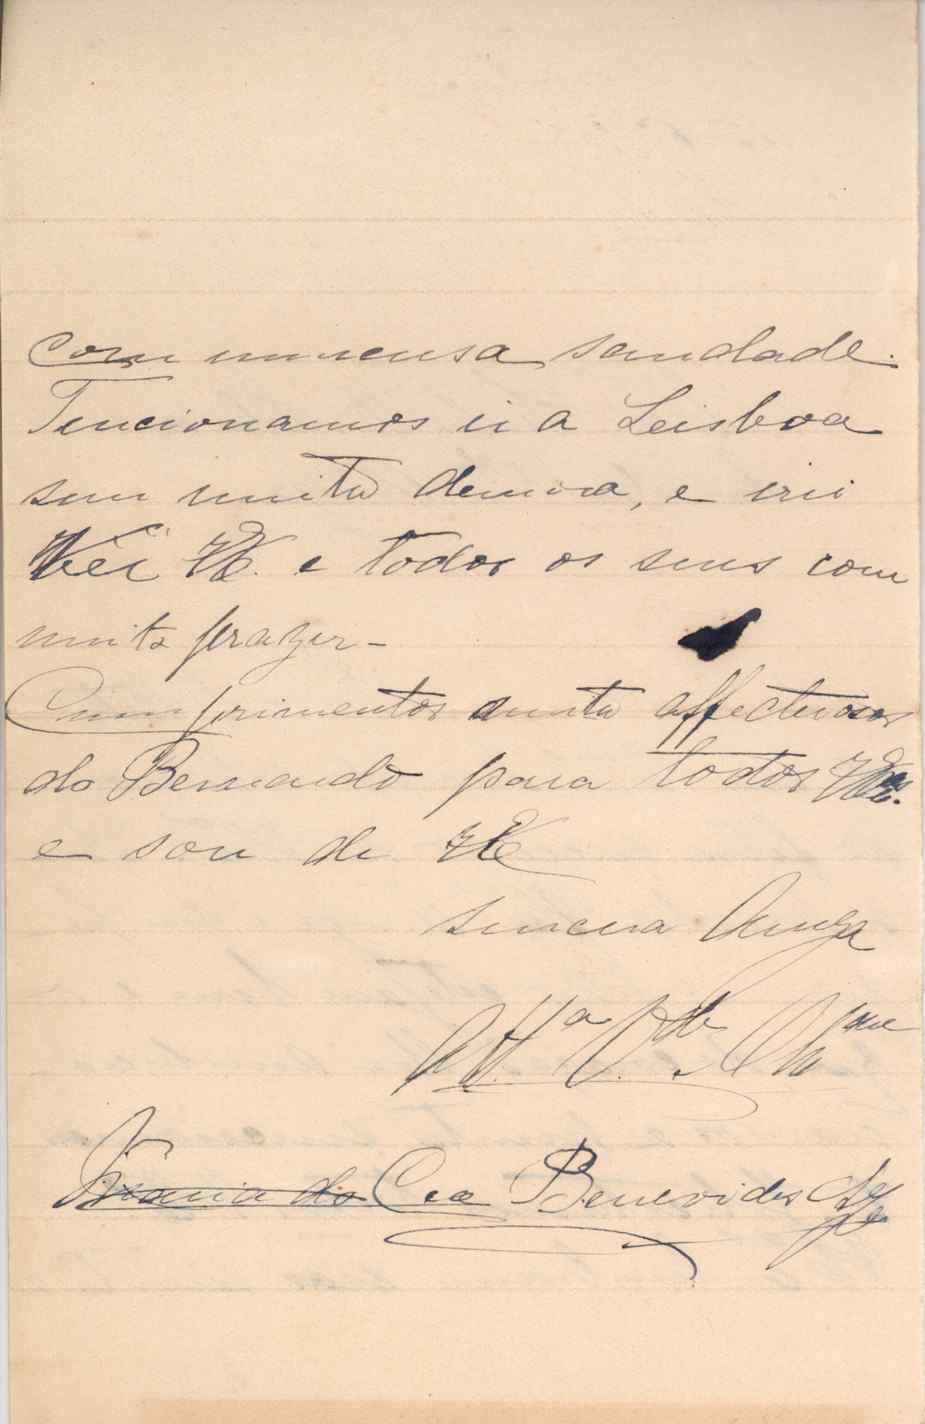 com immensa saudade.
Tencionamos ir a Leisboa
sem muita demora, e irei
Vêr VE. e todos os seus com
muito prazer -
Cumprimentos muito affectuosos
do Bernardo para todos VEas.
e sou de VE
sincera Amiga
Mta Vdr
Maria do Ceo Benevides